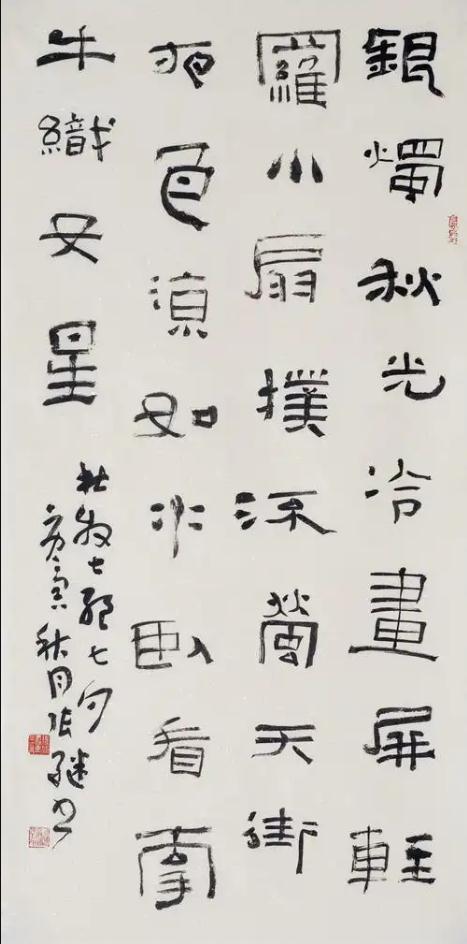 銀燭秋光冷畫屏輕
羅小扇撲流螢天街
夜色涼如水臥看牽
牛織女星
杜牧七絕七夕
庚寅秋月張繼書